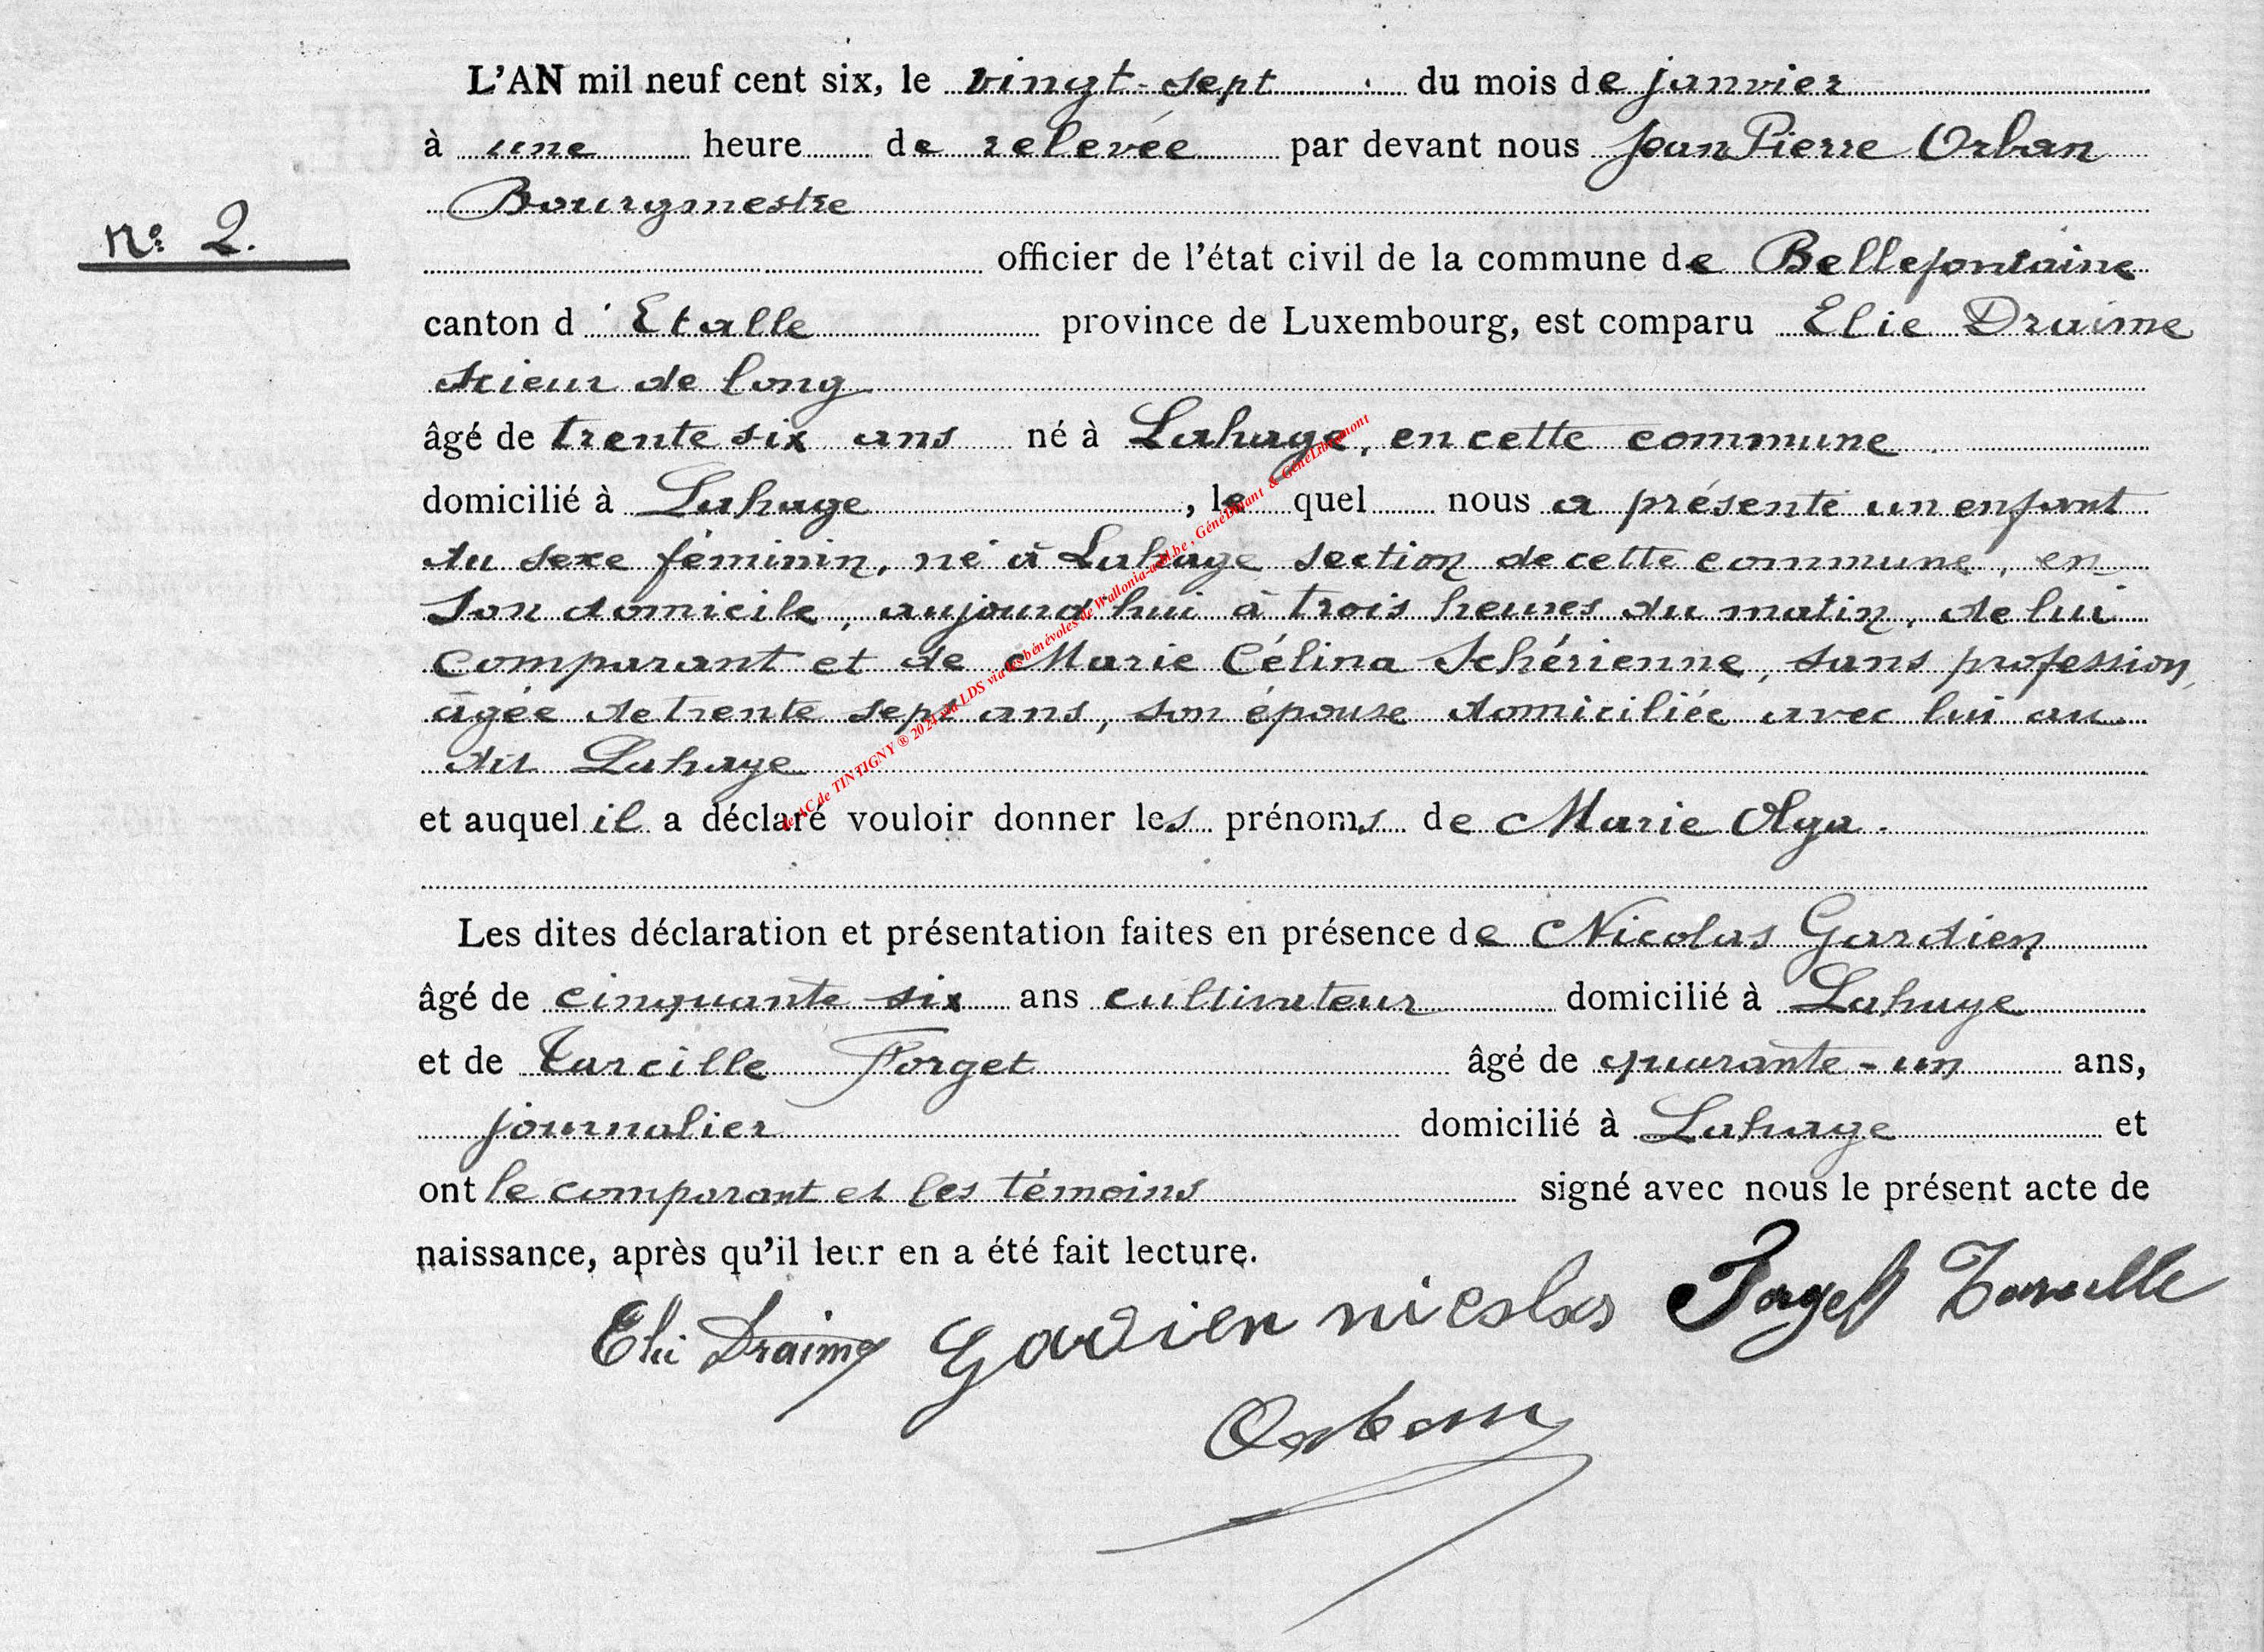 L'AN mil neuf cent six, le vingt-sept du mois de janvier
à une heure de relevée par devant nous Jean Pierre Orban
Bourgmestre
n° 2.
officier de l'état civil de la commune de Bellefontaine
canton d'Etalle province de Luxembourg, est comparu Elie Draime
scieur de long
âgé de trente six ans né à Lahage, en cette commune
domicilié à Lahage, lequel nous a présenté un enfant
du sexe féminin, né à Lahage section de cette commune, en
son domicile, aujourd'hui à trois heures du matin, de lui
comparant et de Marie Célina Schérienne, sans profession,
âgée de trente sept ans, son épouse domiciliée avec lui au
dit Lahage
et auquel il a déclaré vouloir donner les prénoms de Marie Olga.
Les dites déclaration et présentation faites en présence de Nicolas Gardien
âgé de cinquante six ans cultivateur domicilié à Lahage
et de Tarcille Forget âgé de quarante-un ans,
journalier domicilié à Lahage et
ont le comparant et les témoins signé avec nous le présent acte de
naissance, après qu'il leur en a été fait lecture.
Elie Draime Gardien nicolas Forget Tarcille
Orban
AC de TINTIGNY ® 2024 LDS via les bénévoles de Wallonia-asbl.be, GénéDinant & GénéLibramont